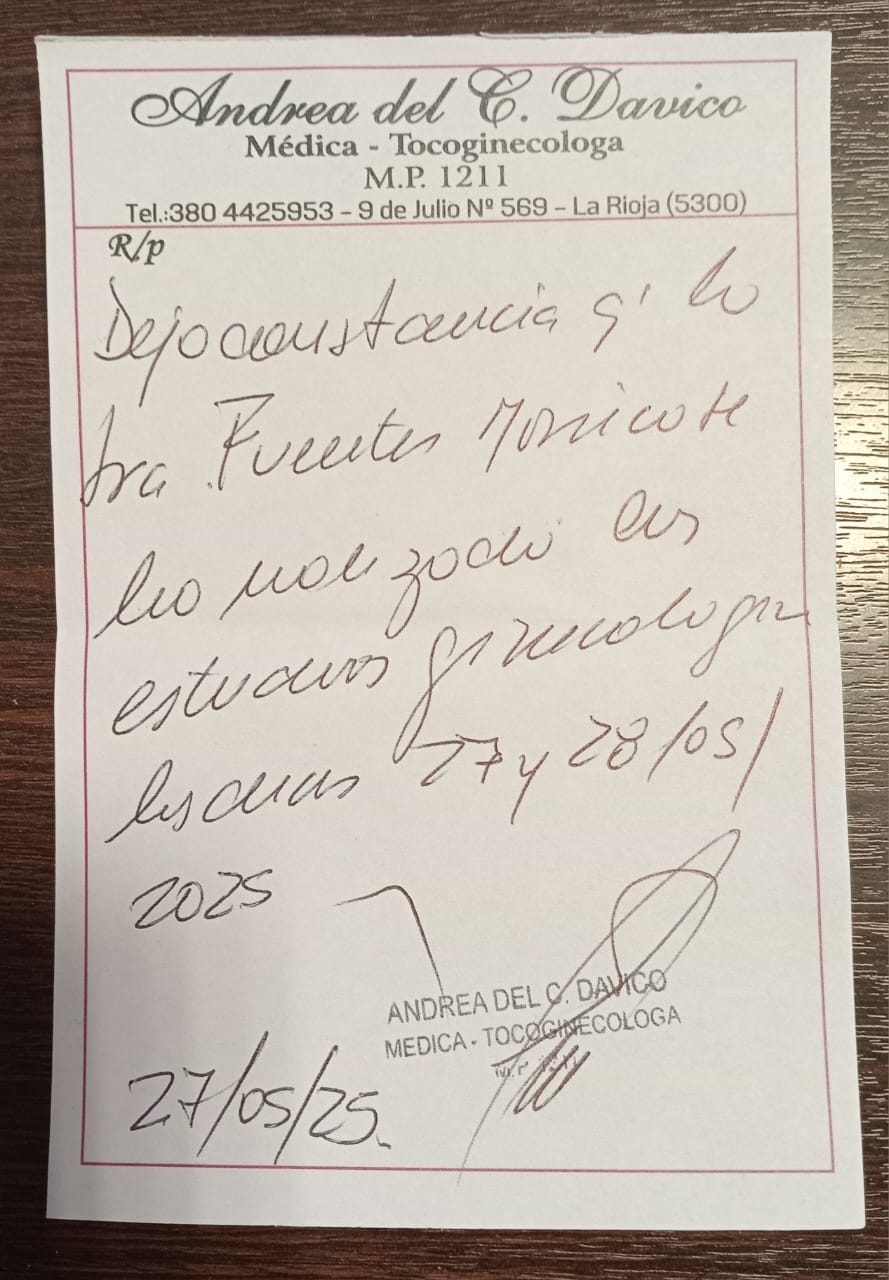 Andrea del C. Davico
Médica - Tocoginecologa
M.P. 1211
Tel.:380 4425953 - 9 de Julio Nº 569 - La Rioja (5300)
R/p
Dejo constancia q' la
Sra Fuentes Monica se
ha realizado los
estudios ginecologicos
los dias 27 y 28/05/
2025
ANDREA DEL C. DAVICO
MEDICA - TOCOGINECOLOGA
27/05/25.